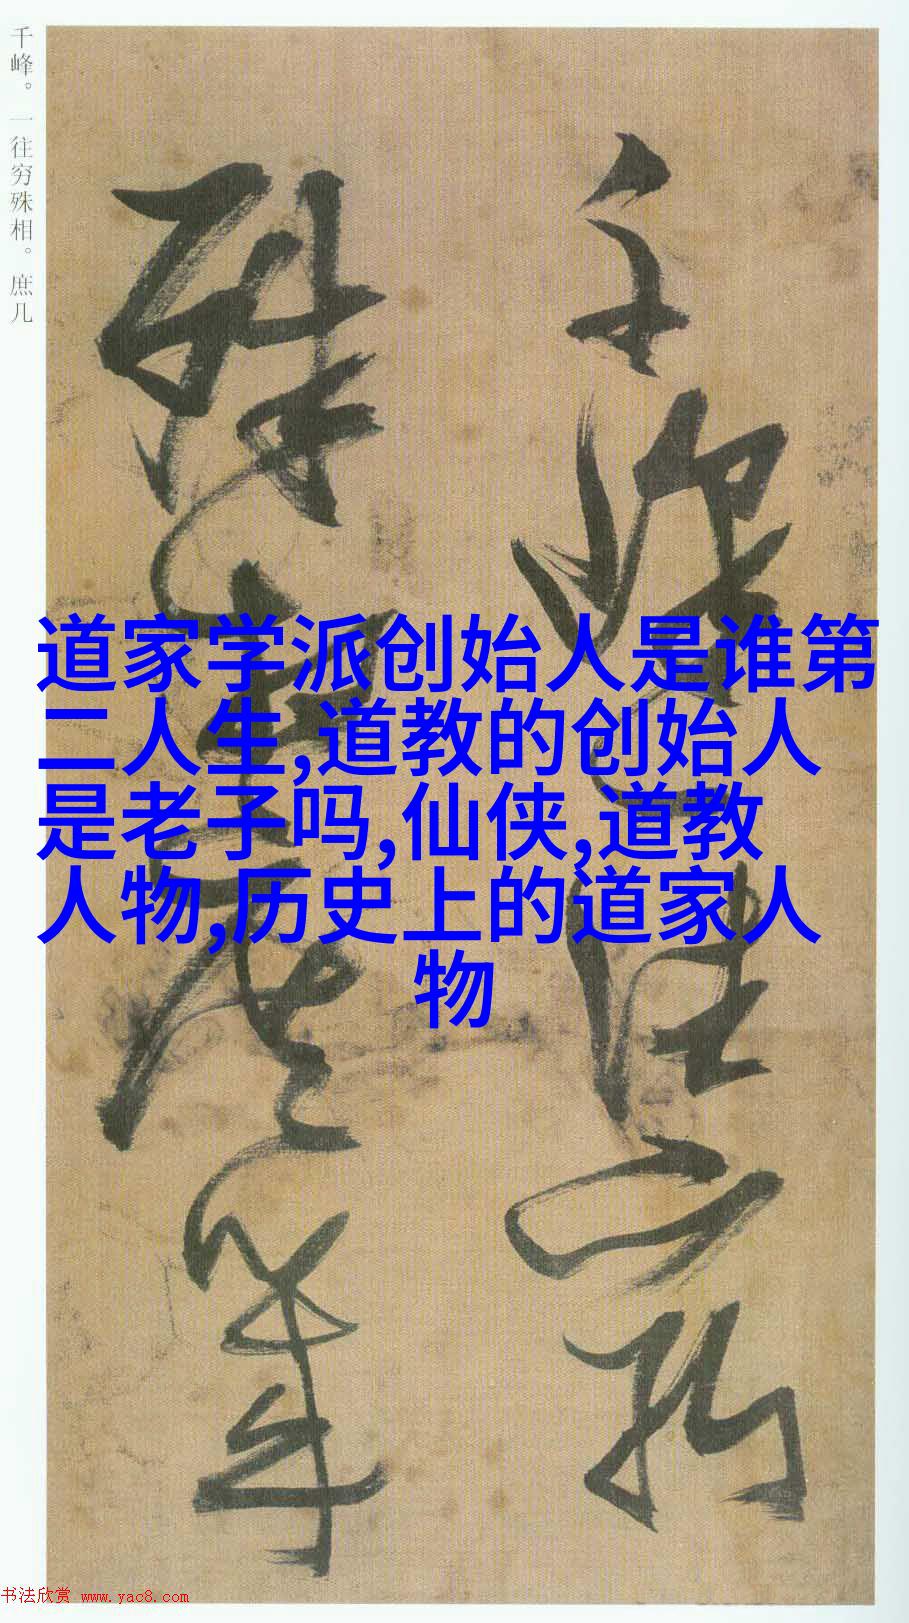 千峰。一往穷殊相。庶几
千峰一往穷
殊相庶几
道家学派创始人是谁第
二人生,道教的创始人
是老子吗,仙侠,道教
人物,历史上的道家人
物
书法欣赏 www.yac8.com